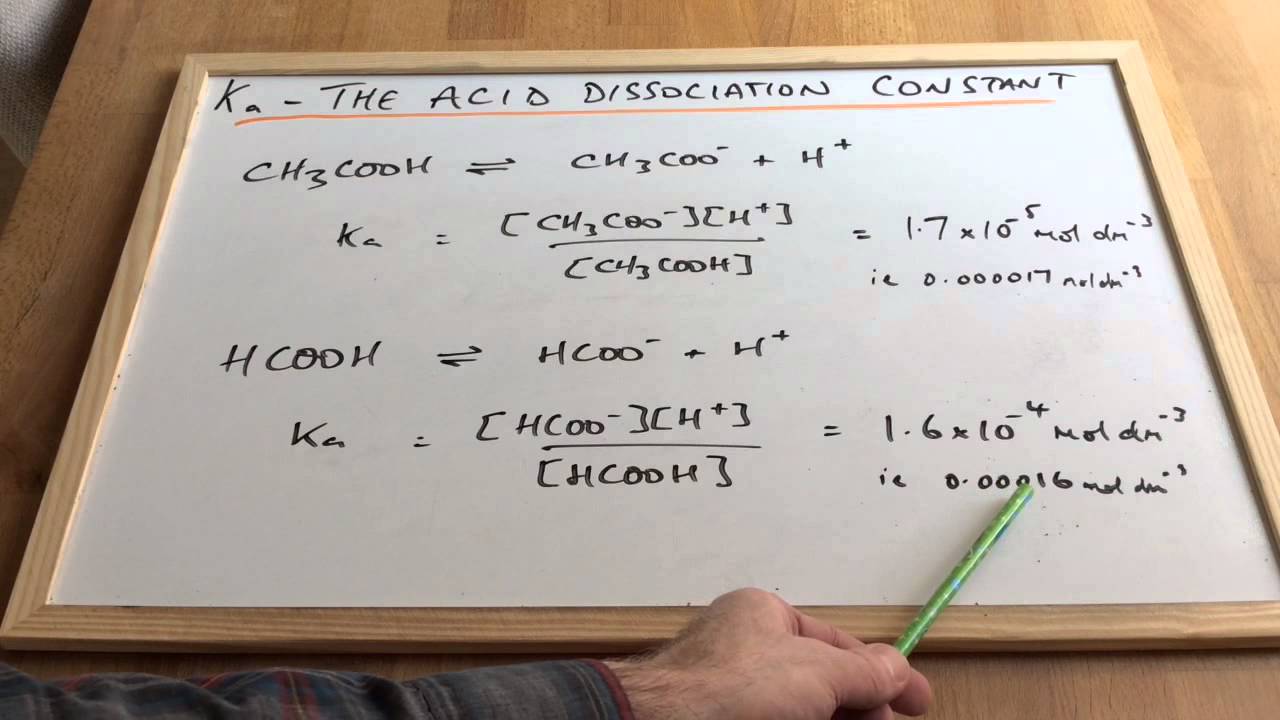 Ka - THE ACID DISSOCIATION CONSTANT
CH3COOH ⇌ CH3COO⁻ + H⁺
Ka = [CH3COO⁻][H⁺] / [CH3COOH] = 1.7 × 10⁻⁵ mol dm⁻³
ie 0.000017 mol dm⁻³
HCOOH ⇌ HCOO⁻ + H⁺
Ka = [HCOO⁻][H⁺] / [HCOOH] = 1.6 × 10⁻⁴ mol dm⁻³
ie 0.00016 mol dm⁻³